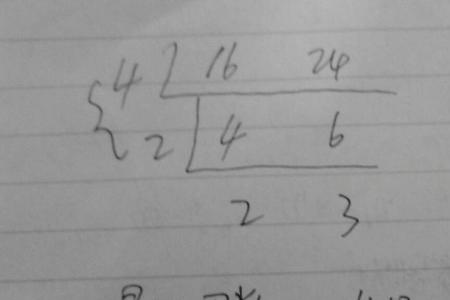 4 16 24
2 4 6
2 3